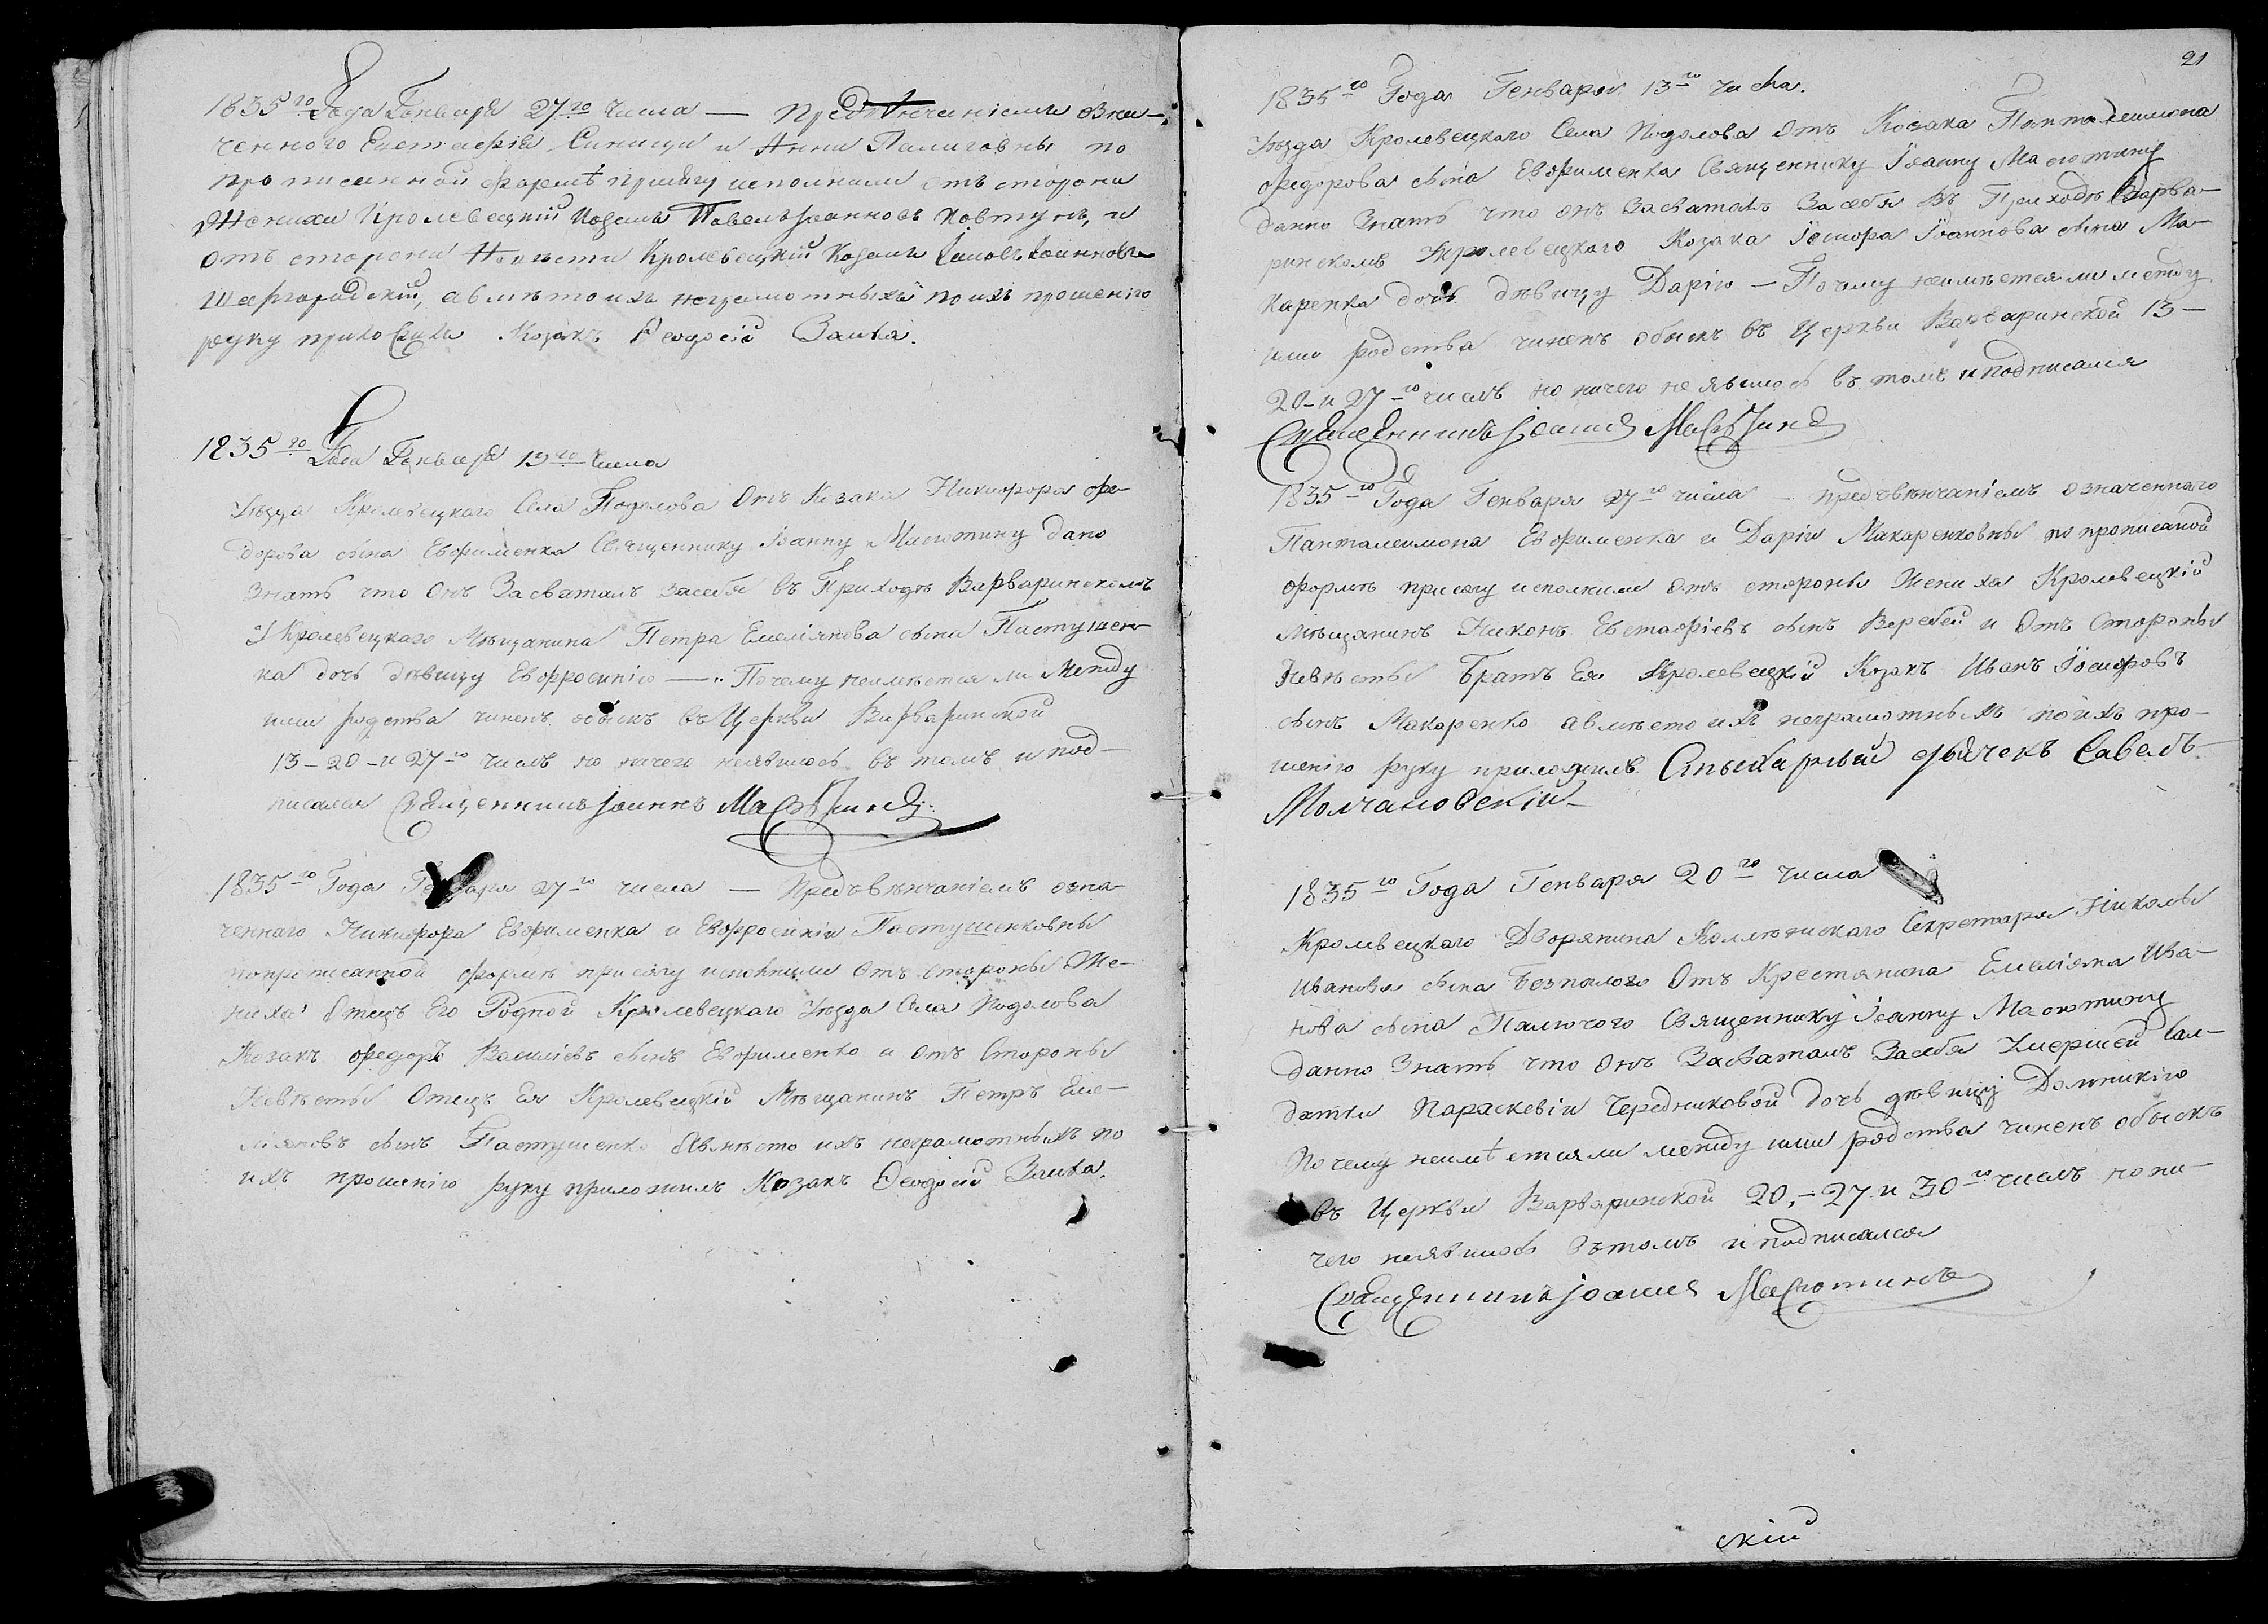 1835го Года Генваря 27го числа — Предъвѣнчаніемъ озна-
ченного Евстафія Синици и Анни Палиговны по
прописанной формѣ присягу исполнили отъ стороны
Жениха Кролевецкій Козакъ Павелъ Іоанновъ Ковтунъ, и
отъ стороны Невѣсти Кролевецкій Козакъ Іоанновъ
авмѣсто ихъ неграмотныхъ по ихъ прошенію
руку приложилъ Козакъ Феодосій Заика.
1835го Года Генваря 13го числа
Уѣзда Кролевецкого Села Подолова Отъ Козака Никифора Фе-
дорова сына Евфименка Священнику Іоанну Масютину дано
знать что онъ Засваталъ засебя въ Приходѣ Варваринскомъ
У Кролевецкаго Мѣщанина Петра Емеліянова сына Пастушен-
ка дочь дѣвицу Евфросинію — Почему неимѣется ли между
ими родства чиненъ обыскъ въ Церкви Варваринской
13-20-и 27го числъ но ничего неявилось въ томъ и под-
писался Священникъ Іоаннъ Масютинъ
1835го Года Генваря 27го числа — Предъвѣнчаніемъ озна-
ченнаго Никифора Евфименка и Евфросиніи Пастушенковны
попрописанной формѣ присягу исполнили Отъ стороны Же-
ниха Отецъ Его Родной Кролевецкаго Уѣзда Села Подолова
Козакъ Федоръ Василіевъ сынъ Евфименко и отъ Стороны
Невѣсты Отецъ Ея Кролевецкій Мѣщанинъ Петръ Еме-
ліяновъ сынъ Пастушенко авмѣсто ихъ неграмотныхъ по
ихъ прошенію руку приложилъ Козакъ Феодосій Заика.
21
1835го Года Генваря 13го числа.
Уѣзда Кролевецкаго Села Подолова Отъ Козака Пантелеимона
Федорова сына Евфименка Священнику Іоанну Масютину
данно Знать что онъ Засваталъ Засебя въ Приходѣ Варва-
ринскомъ Кролевецкаго Козака Іосифа Іоаннова сына Ма-
каренка дочь дѣвицу Дарію — Почему неимѣетсяли между
ими родства чиненъ обыскъ въ Церкви Варваринской 13-
20-и 27-го числъ но ничего не явилось въ томъ и подписался
Священникъ Іоаннъ Масютинъ
1835го Года Генваря 27го числа — предъвѣнчаніемъ означеннаго
Панталеимона Евфименка и Даріи Макаренковны по прописаной
формѣ присягу исполнили Отъ стороны Жениха Кролевецкій
Мѣщанинъ Никонъ Евстафіевъ сынъ Воробей и Отъ Стороны
Невѣсты Братъ Ея Кролевецкій Козакъ Иванъ Іосифовъ
сынъ Макаренко авмѣсто ихъ неграмотныхъ поихъ про-
шенію руку приложилъ Стыхарный дьячекъ Савелъ
Молчановскій
1835го Года Генваря 20го числа
Кролевецкаго Дворянина Коллежскаго Секретаря Николы
Иванова сына Безпалого Отъ Крестянина Емеліяна Ива-
нова сына Палючого Священнику Іоанну Масютину
данно Знать что Онъ Засваталъ Засебя Умершей Сал-
датки Параскевіи Чередниковой дочь дѣвицу Домникію
Почему неимѣетсяли между ими родства чиненъ обыскъ
въ Церкви Варваринской 20,-27 и 30го числъ но ни-
чего неявилось Вътомъ и подписался
Священникъ Іоаннъ Масютинъ
скій